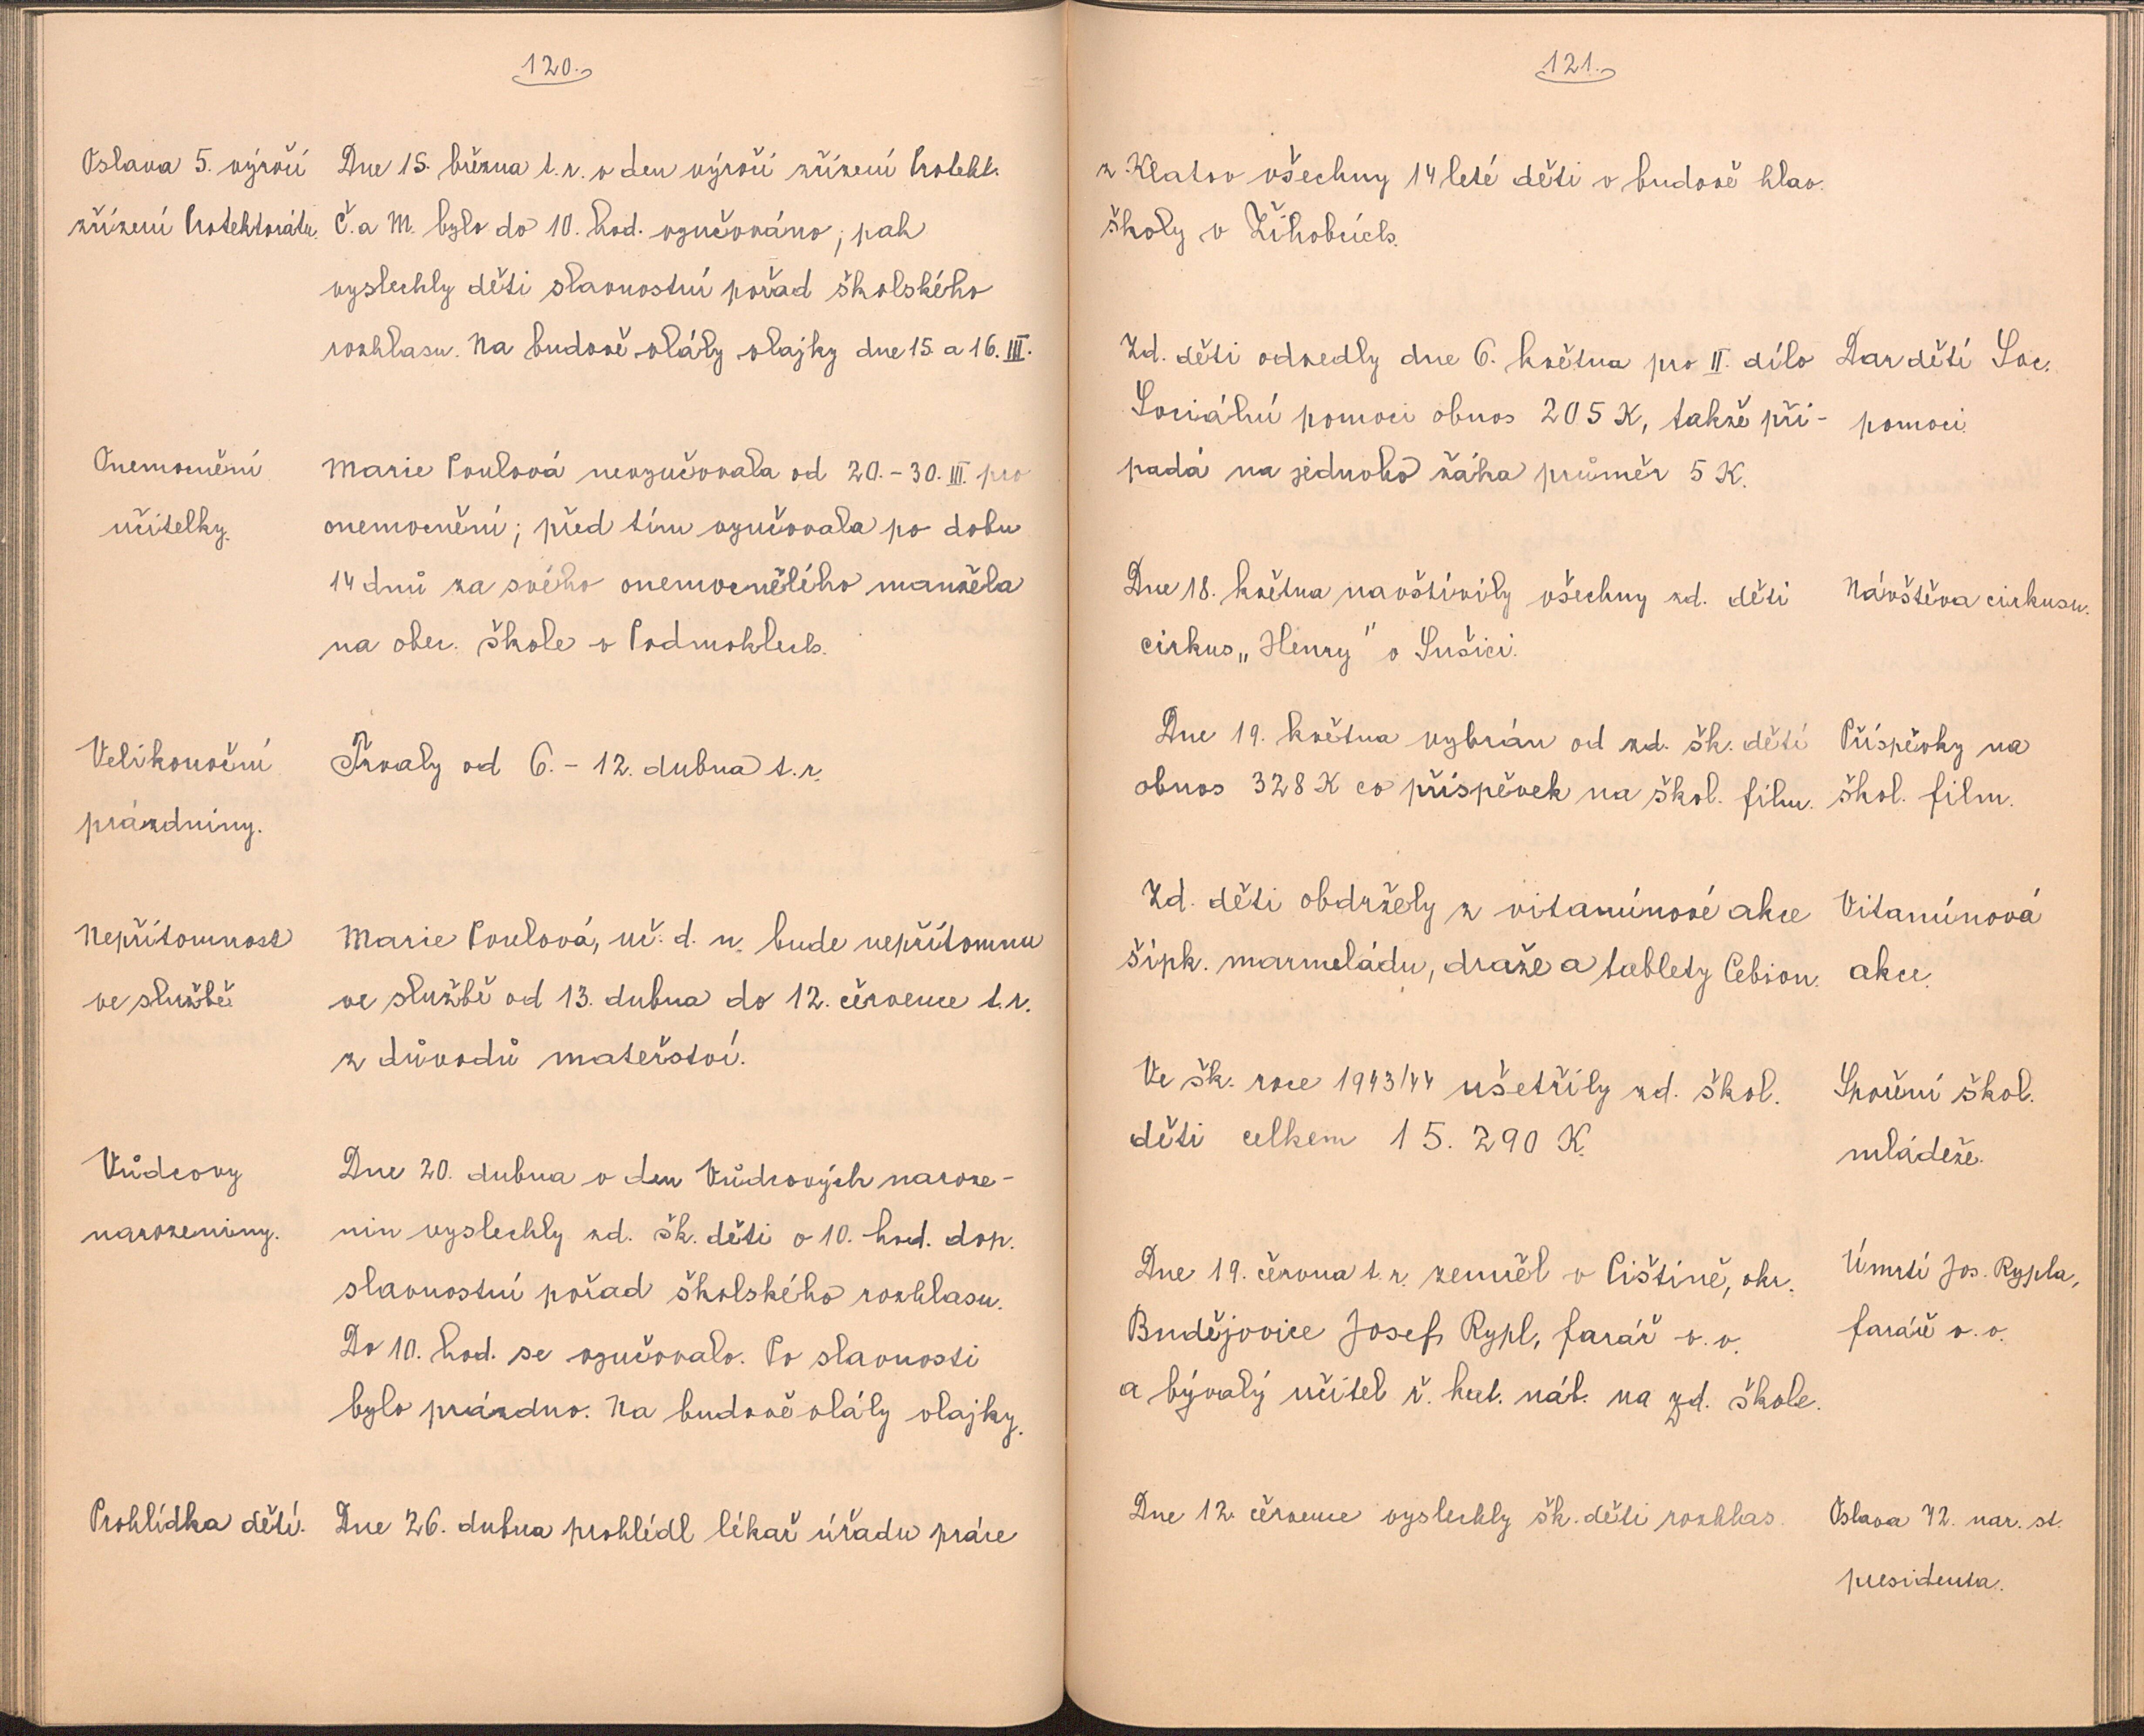 120.
Oslava 5. výročí
zřízení Protektorátu.
Dne 15. března t. r. v den výročí zřízení Protekt.
Č. a M. bylo do 10. hod. vyučováno; pak
vyslechly děti slavnostní pořad školského
rozhlasu. Na budově vlály vlajky dne 15. a 16. III.
Onemocnění
učitelky.
Marie Poulová nevyučovala od 20. - 30. III. pro
onemocnění; před tím vyučovala po dobu
14 dnů za svého onemocnělého manžela
na obec. škole v Podmoklech.
Velikonoční
prázdniny.
Trvaly od 6. - 12. dubna t. r.
Nepřítomnost
ve službě
Marie Poulová, uč. d. n. bude nepřítomna
ve službě od 13. dubna do 12. července t. r.
z důvodů mateřství.
Vůdcovy
narozeniny.
Dne 20. dubna v den Vůdcových naroze-
nin vyslechly zd. šk. děti o 10. hod. dop.
slavnostní pořad školského rozhlasu.
Do 10. hod. se vyučovalo. Po slavnosti
bylo prázdno. Na budově vlály vlajky.
Prohlídka dětí.
Dne 26. dubna prohlédl lékař úřadu práce
121.
z Klatov všechny 14 leté děti v budově hlav.
školy v Žihobcích.
Zd. děti odvedly dne 6. května pro II. dílo
Sociální pomoci obnos 205 K, takže při-
padá na jednoho žáka průměr 5 K.
Dar dětí Soc.
pomoci.
Dne 18. května navštívily všechny zd. děti
cirkus „Henry" v Sušici.
Návštěva cirkusu.
Dne 19. května vybrán od zd. šk. dětí
obnos 328 K co příspěvek na škol. film.
Příspěvky na
škol. film.
Zd. děti obdržely z vitamínové akce
šípk. marmeládu, draže a tablety Cebion.
Vitamínová
akce.
Ve šk. roce 1943/44 ušetřily zd. škol.
děti celkem 15. 290 K.
Spoření škol.
mládeže.
Dne 19. června t. r. zemřel v Pištíně, okr.
Budějovice Josef Rypl, farář v. v.
a bývalý učitel ř. kat. náb. na zd. škole.
Úmrtí Jos. Rypla,
faráře v. v.
Dne 12. července vyslechly šk. děti rozhlas.
Oslava 72. nar. st.
presidenta.